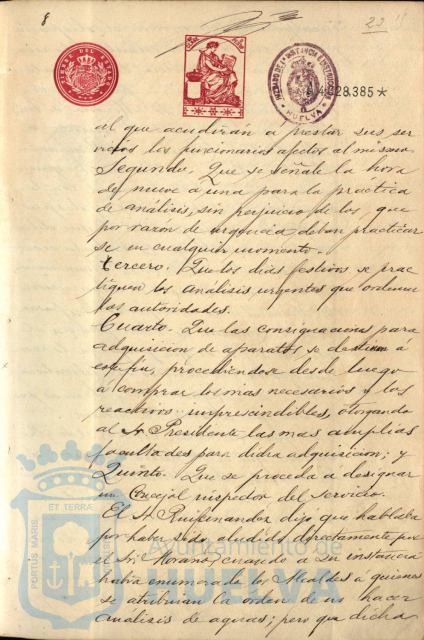 8
22
4.028.385*
JUZGADO DE 1ª INSTANCIA E INSTRUCCION
HUELVA
al que acudiran á prestar sus ser
vicios los funcionarios afectos al mismo.
Segundo. Que se señale la hora
de nueve a una para la practica
de análisis, sin perjuicio de los que
por razon de urgencia deban practicar
se en cualquier momento.
Tercero. Que los dias festivos se prac
tiquen los análisis urgentes que ordenen
las autoridades.
Cuarto. Que las consignaciones para
adquisicion de aparatos se destinen á
este fin, procediendose desde luego
á comprar los mas necesarios y los
reactivos imprescindibles, otorgando
al Sr Presidente las mas amplias
facultades para dicha adquisicion; y
Quinto. Que se proceda a designar
un Concejal inspector del servicio.
El Sr Ruifernandez dijo que hablaba
por haber sido aludido directamente por
el Sr. Morano, cuando a su instancia
habia enumerado los Alcaldes a quienes
se atribuian la orden de no hacer
analisis de aguas; pero que dicha
PORTUS MARIS ET TERRAE
Ayuntamiento de
HUELVA